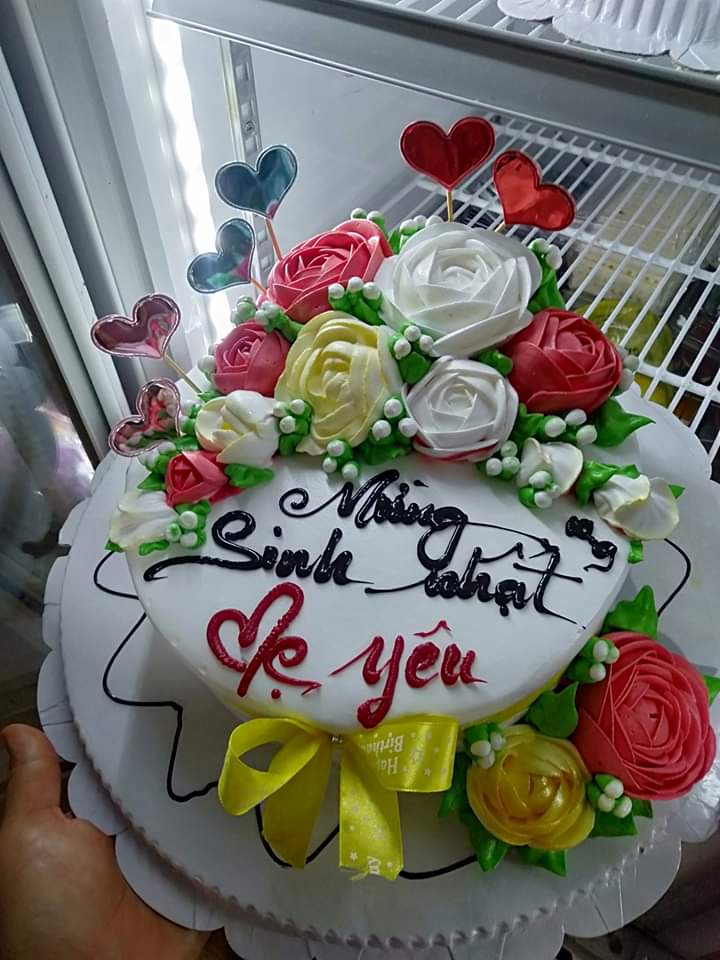 Mừng
Sinh nhật
Mẹ yêu
Happy
Birthday